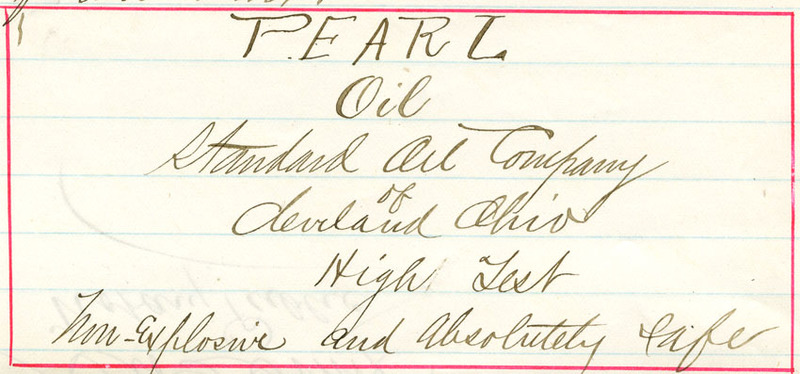 PEARL
Oil
Standard Oil Company
of
Cleveland Ohio
High Test
Non-Explosive and Absolutely Safe